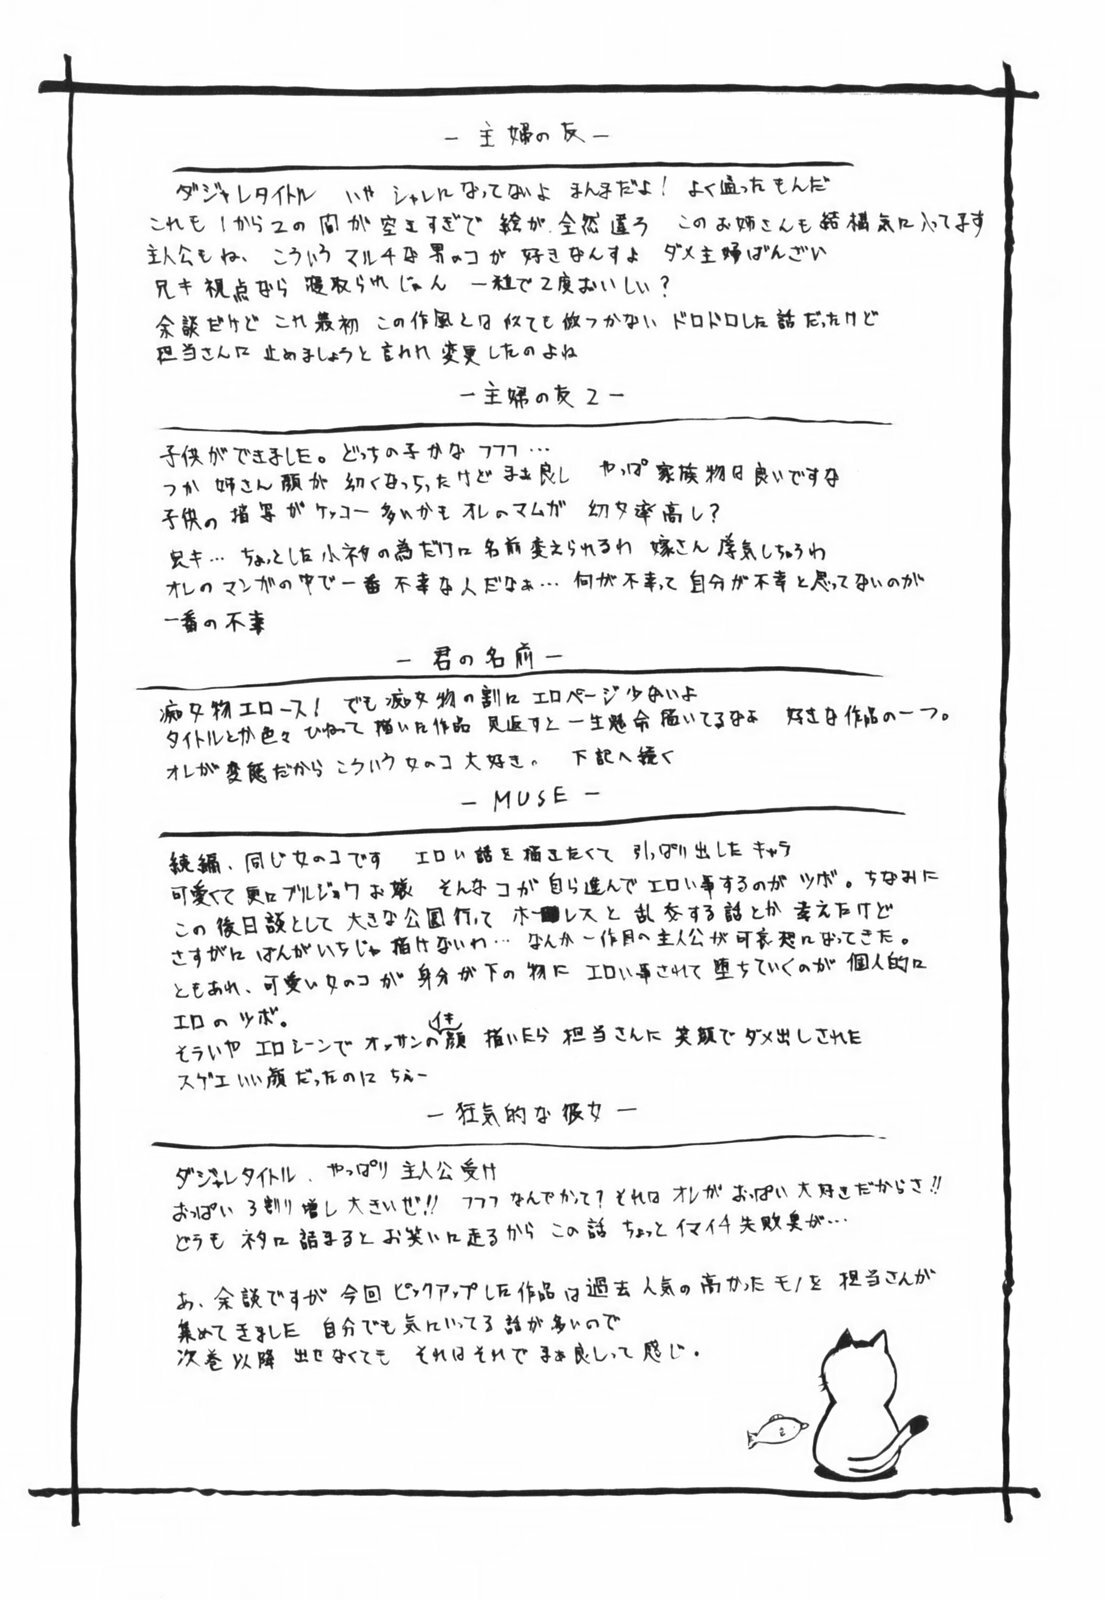 ー 主婦の友 ー
ダジャレタイトル いや シャレになってないよ まんまだよ! よく通ったもんだ
これも1から2の間が空きすぎで 絵が全然違う このお姉さんも結構気に入ってます
主人公もね、こういうマルチな男のコが好きなんすよ ダメ主婦ばんざい
兄キ視点なら 寝取られじゃん 一粒で2度おいしい?
余談だけど これ最初 この作風とは似ても似つかない ドロドロした話だったけど
担当さんに 止めましょうと言われ 変更したのよね
ー 主婦の友2 ー
子供ができました。どっちの子かな フフフ…
つか 姉さん顔が 幼くなっちったけど まぁ良し やっぱ家族物は良いですな
子供の描写がケッコー多いかも オレのマンガ 幼女率高し?
兄キ… ちょっとした小ネタの為だけに 名前変えられるわ 嫁さん浮気しちゃうわ
オレのマンガの中で一番不幸な人だなぁ… 何が不幸って 自分が不幸と思ってないのが
一番の不幸
ー 君の名前 ー
痴女物エロース! でも痴女物の割に エロページ少ないよ
タイトルとか色々ひねって描いた作品 見返すと一生懸命描いてるなぁ 好きな作品の一つ。
オレが変態だから こういう女のコ大好き。 下記へ続く
ー MUSE ー
続編、同じ女のコです エロい話を描きたくて 引っぱり出したキャラ
可愛くて更にブルジョワお嬢 そんなコが自ら進んでエロい事するのがツボ。ちなみに
この後日談として 大きな公園行って ホームレスと乱交する話とか考えたけど
さすがに ばんがいちじゃ描けないわ… なんか一作目の主人公が可哀想になってきた。
ともあれ、可愛い女のコが 身分が下の物に エロい事されて堕ちていくのが 個人的に
エロのツボ。
そういや エロシーンで オッサンのイキ顔 描いたら 担当さんに 笑顔でダメ出しされた
スゲエいい顔だったのに ちぇー
ー 狂気的な彼女 ー
ダジャレタイトル、やっぱり主人公受け
おっぱい3割り増し大きいぜ!! フフフなんでかって? それはオレがおっぱい大好きだからさ!!
どうも ネタに詰まるとお笑いに走るから この話 ちょっとイマイチ失敗臭が…
あ、余談ですが 今回ピックアップした作品は過去人気の高かったモノを 担当さんが
集めてきました 自分でも気にいってる話が多いので
次巻以降 出せなくても それはそれで まぁ良しって感じ。